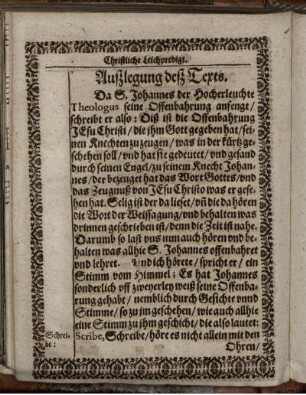 Christliche Leichpredigt.
Außlegung deß Texts.
Da S. Johannes der Hocherleuchte
Theologus seine Offenbahrung anfengt/
schreibt er also: Diß ist die Offenbahrung
JEsu Christi/ die ihm Gott gegeben hat/ sei-
nen Knechten zuzeugen/ was in der kürtz ge-
schehen soll/ und hat sie gedeutet/ und gesand
durch seinen Engel/ zu seinem Knecht Johan-
nes/ der bezeuget hat das Wort Gottes/ und
das Zeugnuß von JEsu Christo was er gese-
hen hat. Selig ist der da lieset/ uñ die da hören
die Wort der Weissagung/ und behalten was
drinnen geschrieben ist/ denn die Zeit ist nahe.
Darumb so last uns nun auch hören und be-
halten was allhie S. Johannes offenbahret
und lehret. Und ich hörete/ spricht er/ ein
Stimm vom Himmel: Es hat Johannes
sonderlich uff zweyerley weiß seine Offenba-
rung gehabt/ nemblich durch Gesichte unnd
Stimme/ so zu jm geschehen/ wie auch allhie
eine Stimm zu jhm geschicht/ die also lautet:
Schrei-
be:
Scribe, Schreibe/ höre es nicht allein mit den
Ohren/